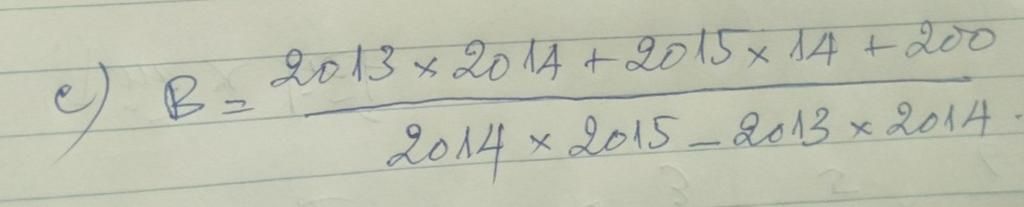 e) B = 2013 × 2014 + 2015 × 14 + 200
2014 × 2015 - 2013 × 2014